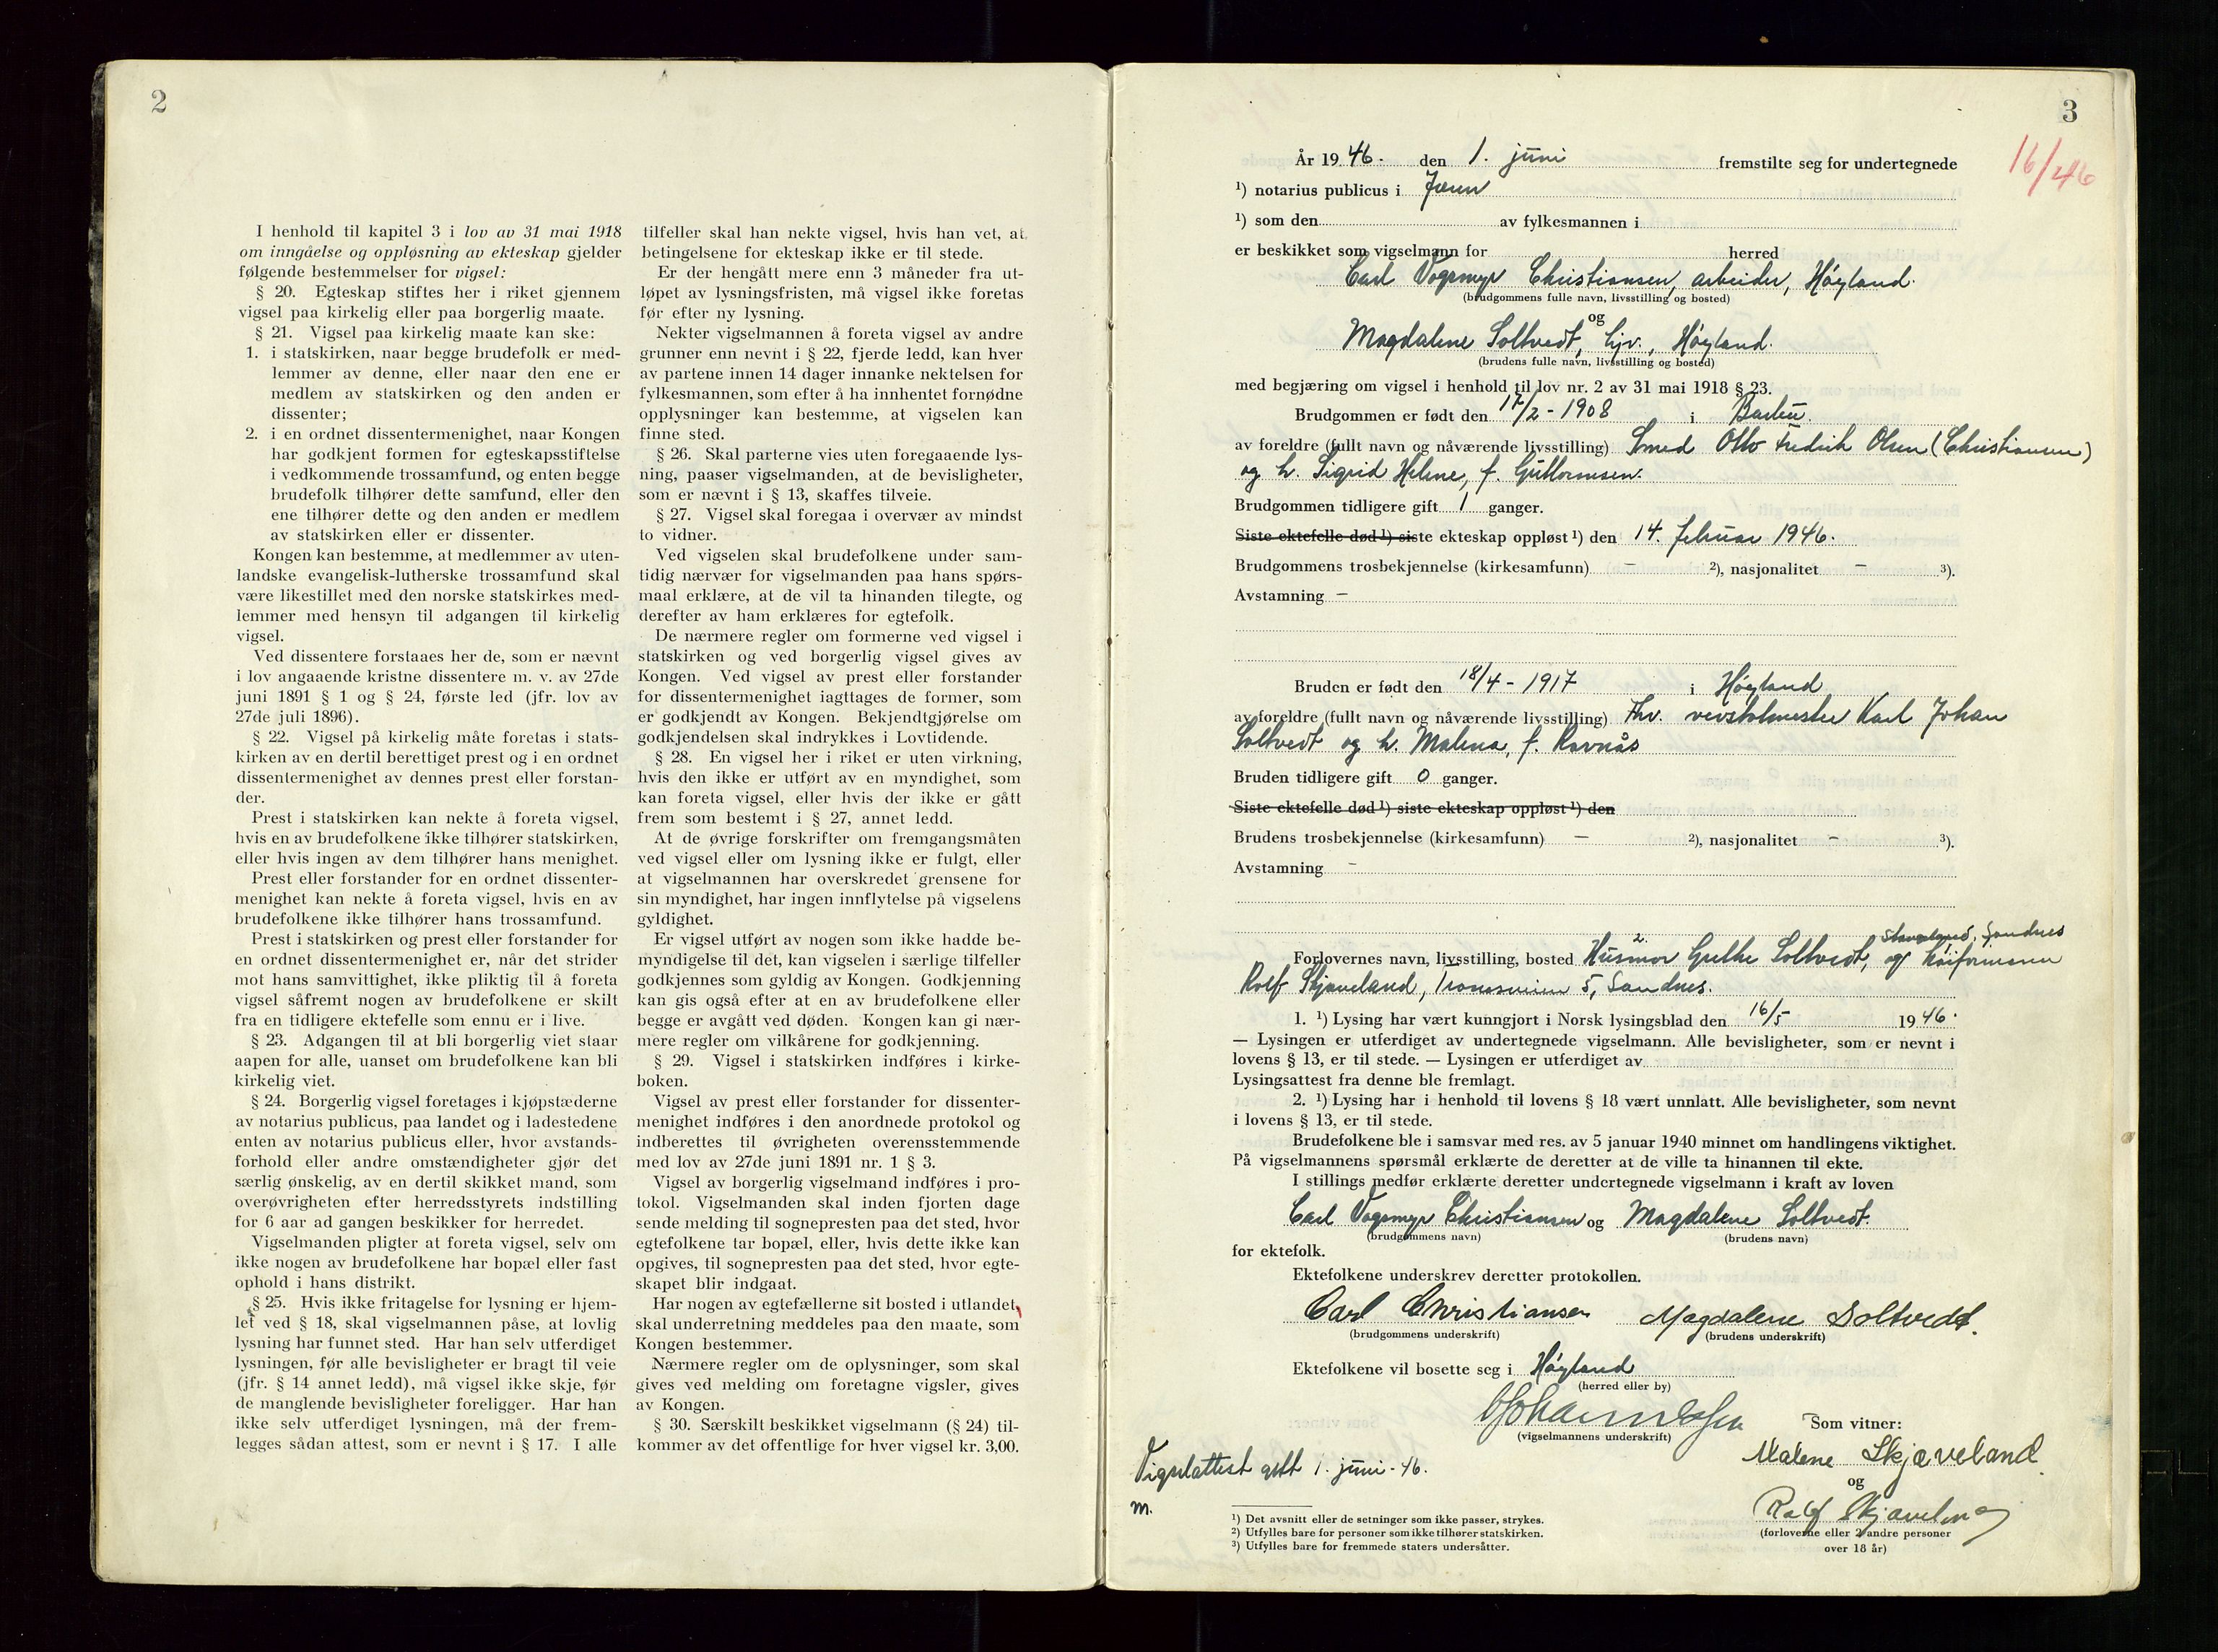 2
I henhold til kapitel 3 i lov av 31 mai 1918
om inngåelse og oppløsning av ekteskap gjelder
følgende bestemmelser for vigsel:
§ 20. Egteskap stiftes her i riket gjennem
vigsel paa kirkelig eller paa borgerlig maate.
§ 21. Vigsel paa kirkelig maate kan ske:
1. i statskirken, naar begge brudefolk er med-
lemmer av denne, eller naar den ene er
medlem av statskirken og den anden er
dissenter;
2. i en ordnet dissentermenighet, naar Kongen
har godkjent formen for egteskapsstiftelse
i vedkommende trossamfund, og enten begge
brudefolk tilhører dette samfund, eller den
ene tilhører dette og den anden er medlem
av statskirken eller er dissenter.
Kongen kan bestemme, at medlemmer av uten-
landske evangelisk-lutherske trossamfund skal
være likestillet med den norske statskirkes med-
lemmer med hensyn til adgangen til kirkelig
vigsel.
Ved dissentere forstaaes her de, som er nævnt
i lov angaaende kristne dissentere m. v. av 27de
juni 1891 § 1 og § 24, første led (jfr. lov av
27de juli 1896).
§ 22. Vigsel på kirkelig måte foretas i stats-
kirken av en dertil berettiget prest og i en ordnet
dissentermenighet av dennes prest eller forstan-
der.
Prest i statskirken kan nekte å foreta vigsel,
hvis en av brudefolkene ikke tilhører statskirken,
eller hvis ingen av dem tilhører hans menighet.
Prest eller forstander for en ordnet dissenter-
menighet kan nekte å foreta vigsel, hvis en av
brudefolkene ikke tilhører hans trossamfund.
Prest i statskirken og prest eller forstander for
en ordnet dissentermenighet er, når det strider
mot hans samvittighet, ikke pliktig til å foreta
vigsel såfremt nogen av brudefolkene er skilt
fra en tidligere ektefelle som ennu er i live.
§ 23. Adgangen til at bli borgerlig viet staar
aapen for alle, uanset om brudefolkene kan bli
kirkelig viet.
§ 24. Borgerlig vigsel foretages i kjøpstæderne
av notarius publicus, paa landet og i ladestedene
enten av notarius publicus eller, hvor avstands-
forhold eller andre omstændigheter gjør det
særlig ønskelig, av en dertil skikket mand, som
overøvrigheten efter herredsstyrets indstilling
for 6 aar ad gangen beskikker for herredet.
Vigselmanden pligter at foreta vigsel, selv om
ikke nogen av brudefolkene har bopæl eller fast
ophold i hans distrikt.
§ 25. Hvis ikke fritagelse for lysning er hjem-
let ved § 18, skal vigselmannen påse, at lovlig
lysning har funnet sted. Har han selv utferdiget
lysningen, før alle bevisligheter er bragt til veie
(jfr. § 14 annet ledd), må vigsel ikke skje, før
de manglende bevisligheter foreligger. Har han
ikke selv utferdiget lysningen, må der frem-
legges sådan attest, som er nevnt i § 17. I alle
tilfeller skal han nekte vigsel, hvis han vet, at
betingelsene for ekteskap ikke er til stede.
Er der hengått mere enn 3 måneder fra ut-
løpet av lysningsfristen, må vigsel ikke foretas
før efter ny lysning.
Nekter vigselmannen å foreta vigsel av andre
grunner enn nevnt i § 22, fjerde ledd, kan hver
av partene innen 14 dager innanke nektelsen for
fylkesmannen, som efter å ha innhentet fornødne
opplysninger kan bestemme, at vigselen kan
finne sted.
§ 26. Skal parterne vies uten foregaaende lys-
ning, paaser vigselmanden, at de bevisligheter,
som er nævnt i § 13, skaffes tilveie.
§ 27. Vigsel skal foregaa i overvær av mindst
to vidner.
Ved vigselen skal brudefolkene under sam-
tidig nærvær for vigselmanden paa hans spørs-
maal erklære, at de vil ta hinanden tilegte, og
derefter av ham erklæres for egtefolk.
De nærmere regler om formerne ved vigsel i
statskirken og ved borgerlig vigsel gives av
Kongen. Ved vigsel av prest eller forstander
for dissentermenighet iagttages de former, som
er godkjendt av Kongen. Bekjendtgjørelse om
godkjendelsen skal indrykkes i Lovtidende.
§ 28. En vigsel her i riket er uten virkning,
hvis den ikke er utført av en myndighet, som
kan foreta vigsel, eller hvis der ikke er gått
frem som bestemt i § 27, annet ledd.
At de øvrige forskrifter om fremgangsmåten
ved vigsel eller om lysning ikke er fulgt, eller
at vigselmannen har overskredet grensene for
sin myndighet, har ingen innflytelse på vigselens
gyldighet.
Er vigsel utført av nogen som ikke hadde be-
myndigelse til det, kan vigselen i særlige tilfeller
godkjennes som gyldig av Kongen. Godkjenning
kan gis også efter at en av brudefolkene eller
begge er avgått ved døden. Kongen kan gi nær-
mere regler om vilkårene for godkjenning.
§ 29. Vigsel i statskirken indføres i kirke-
boken.
Vigsel av prest eller forstander for dissenter-
menighet indføres i den anordnede protokol og
indberettes til øvrigheten overensstemmende
med lov av 27de juni 1891 nr. 1 § 3.
Vigsel av borgerlig vigselmand indføres i pro-
tokol. Vigselmanden skal inden fjorten dage
sende melding til sognepresten paa det sted, hvor
egtefolkene tar bopæl, eller, hvis dette ikke kan
opgives, til sognepresten paa det sted, hvor egte-
skapet blir indgaat.
Har nogen av egtefællerne sit bosted i utlandet,
skal underretning meddeles paa den maate, som
Kongen bestemmer.
Nærmere regler om de oplysninger, som skal
gives ved melding om foretagne vigsler, gives
av Kongen.
§ 30. Særskilt beskikket vigselmann (§ 24) til-
kommer av det offentlige for hver vigsel kr. 3,00.
3
16/46
År 1946. den 1. juni fremstilte seg for undertegnede
¹) notarius publicus i Jæren
¹) som den av fylkesmannen i
er beskikket som vigselmann for herred
Carl Vogsmyr Christiansen, arbeider, Høyland.
(brudgommens fulle navn, livsstilling og bosted)
og
Magdalene Soltvedt, hjv., Høyland.
(brudens fulle navn, livsstilling og bosted)
med begjæring om vigsel i henhold til lov nr. 2 av 31 mai 1918 § 23.
Brudgommen er født den 17/2 - 1908 i Barbu.
av foreldre (fullt navn og nåværende livsstilling) Smed Otto Fredrik Olsen (Christiansen)
og h. Sigrid Helene, f. Guttormsen.
Brudgommen tidligere gift 1 ganger.
Siste ektefelle død ¹) siste ekteskap oppløst ¹) den 14. februar 1946.
Brudgommens trosbekjennelse (kirkesamfunn) - ²), nasjonalitet - ³).
Avstamning -
Bruden er født den 18/4 - 1917 i Høyland
av foreldre (fullt navn og nåværende livsstilling) Fhv. vevstolmester Karl Johan
Soltvedt og h. Malena, f. Ravnås
Bruden tidligere gift 0 ganger.
Siste ektefelle død ¹) siste ekteskap oppløst ¹) den
Brudens trosbekjennelse (kirkesamfunn) - ²), nasjonalitet - ³).
Avstamning -
Sandnes
Forlovernes navn, livsstilling, bosted Husmor Grethe Soltvedt, og
Rolf Skjæveland, 5, Sandnes.
1. ¹) Lysing har vært kunngjort i Norsk lysingsblad den 16/5 1946.
— Lysingen er utferdiget av undertegnede vigselmann. Alle bevisligheter, som er nevnt i
lovens § 13, er til stede. — Lysingen er utferdiget av
Lysingsattest fra denne ble fremlagt.
2. ¹) Lysing har i henhold til lovens § 18 vært unnlatt. Alle bevisligheter, som nevnt
i lovens § 13, er til stede.
Brudefolkene ble i samsvar med res. av 5 januar 1940 minnet om handlingens viktighet.
På vigselmannens spørsmål erklærte de deretter at de ville ta hinannen til ekte.
I stillings medfør erklærte deretter undertegnede vigselmann i kraft av loven
Carl Vogsmyr Christiansen og Magdalene Soltvedt.
(brudgommens navn) (brudens navn)
for ektefolk.
Ektefolkene underskrev deretter protokollen.
Carl Christiansen Magdalene Soltvedt.
(brudgommens underskrift) (brudens underskrift)
Ektefolkene vil bosette seg i Høyland
(herred eller by)
(vigselmannens underskrift)
Som vitner:
Malene Skjæveland
og
Rolf Skjæveland
(forloverne eller 2 andre personer
over 18 år)
Vigselattest gitt 1. juni - 46.
m.
¹) Det avsnitt eller de setninger som ikke passer, strykes.
²) Utfylles bare for personer som ikke tilhører statskirken.
³) Utfylles bare for fremmede staters undersåtter.